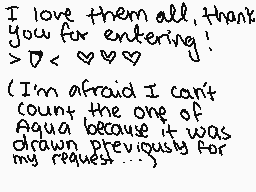 I love them all, thank
you for entering!
>▽< ♡♡♡
(I'm afraid I can't
count the one of
Aqua because it was
drawn previously for
my request...)